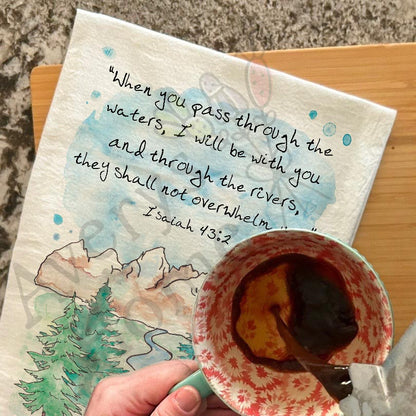 "When you pass through the
waters, I will be with you
and through the rivers,
they shall not overwhelm
Isaiah 43:2